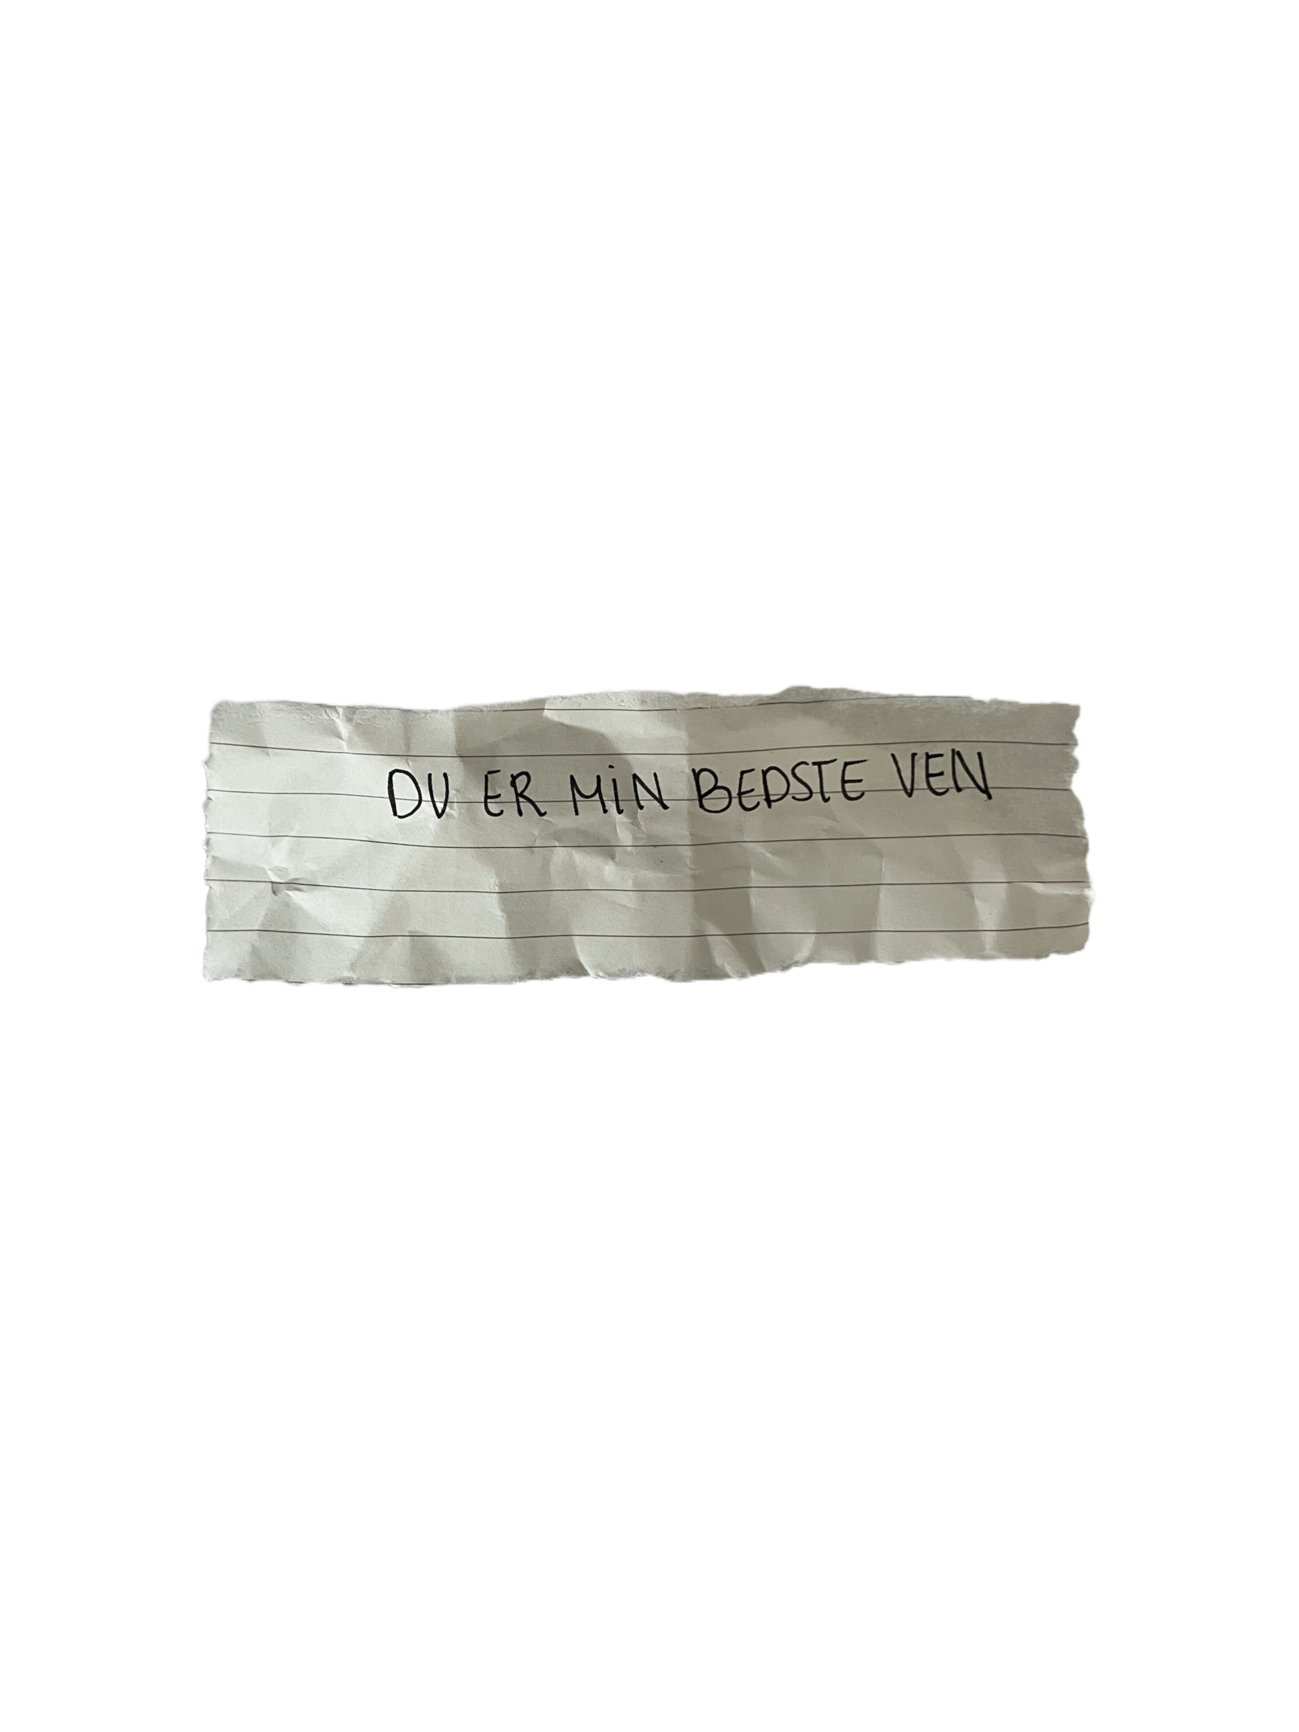 DU ER MiN BEDSTE VEN